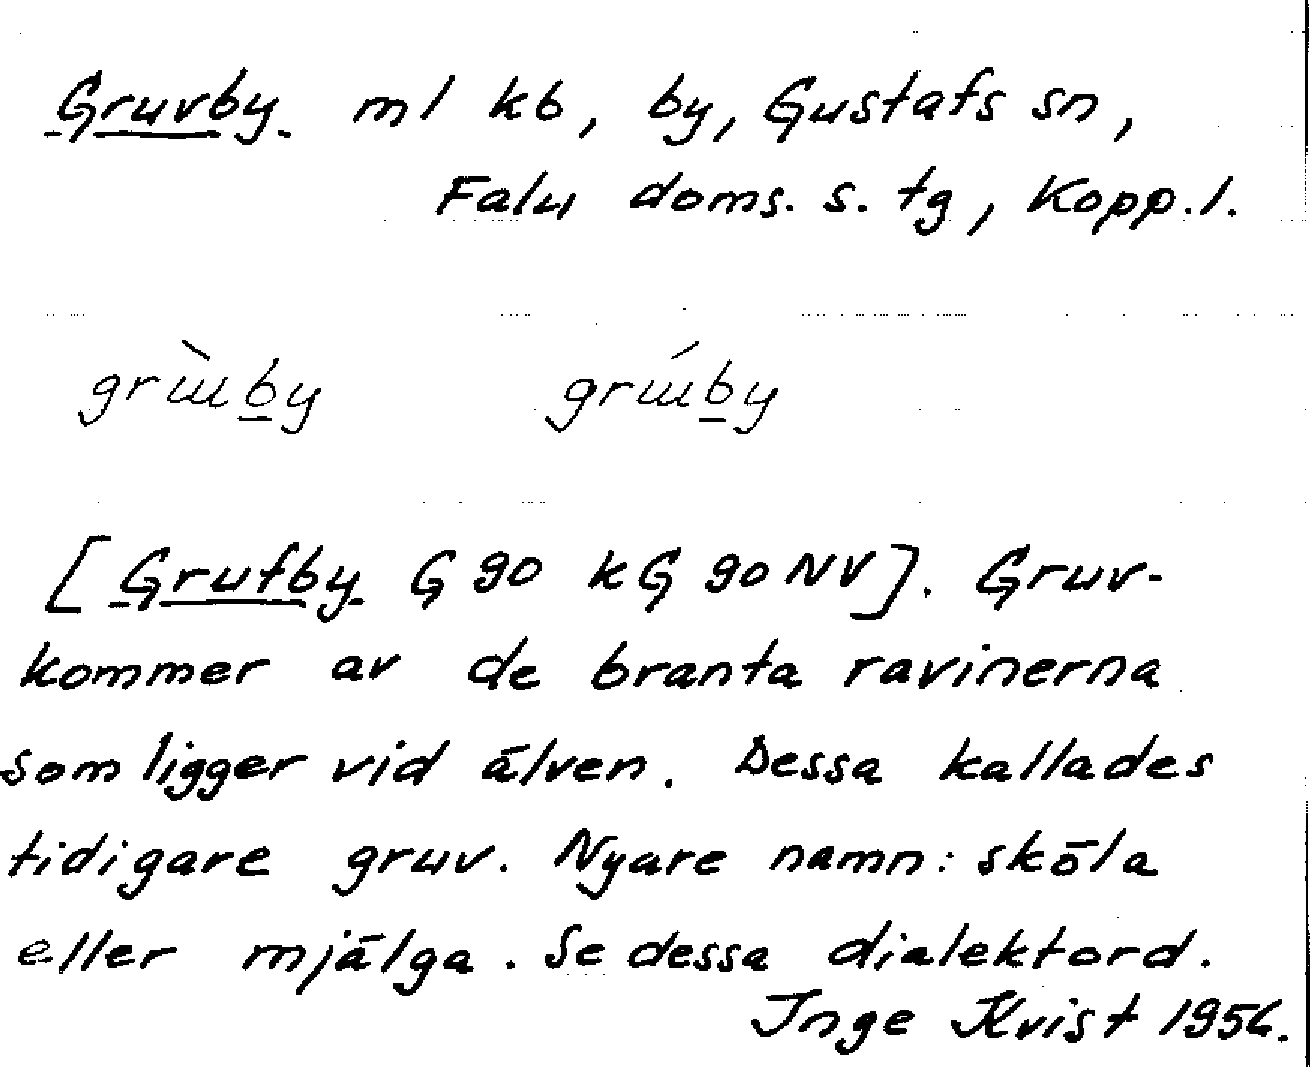 Gruvby ml kb, by, Gustafs sn,
Falu doms. s. tg, Kopp.l.
grɯ̀by grɯ́by
[Grufby G 90 kG 90 NV]. Gruv-
kommer av de branta ravinerna
som ligger vid älven. Dessa kallades
tidigare gruv. Nyare namn: sköla
eller mjälga. Se dessa dialektord.
Inge Kvist 1956.